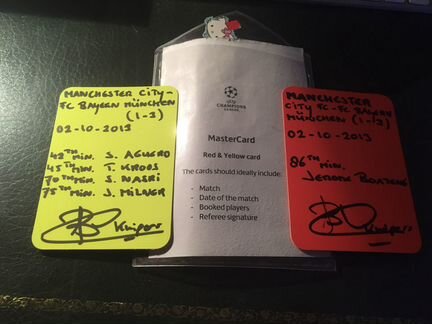 MANCHESTER CITY -
FC BAYERN MÜNCHEN
(1-3)
02-10-2013
42TH MIN. S. AGUERO
45TH MIN. T. KROOS
70TH MIN. S. NASRI
75TH MIN. J. MILNER
Kuipers
UEFA
CHAMPIONS
LEAGUE
MasterCard
Red & Yellow card
The cards should ideally include:
- Match
- Date of the match
- Booked players
- Referee signature
MANCHESTER
CITY - FC BAYERN
MÜNCHEN (1-3)
02-10-2013
86TH MIN.
JEROME BOATENG
Kuipers